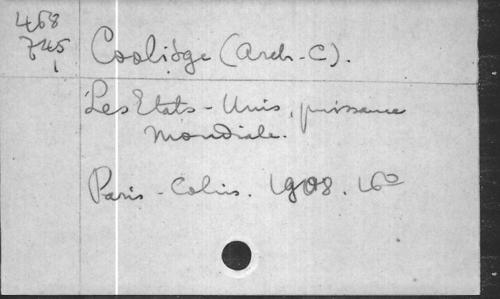 468
745
1
Coolidge (Arch-C).
Les Etats-Unis, puissance
mondiale.
Paris-Colin. 1908. 16º